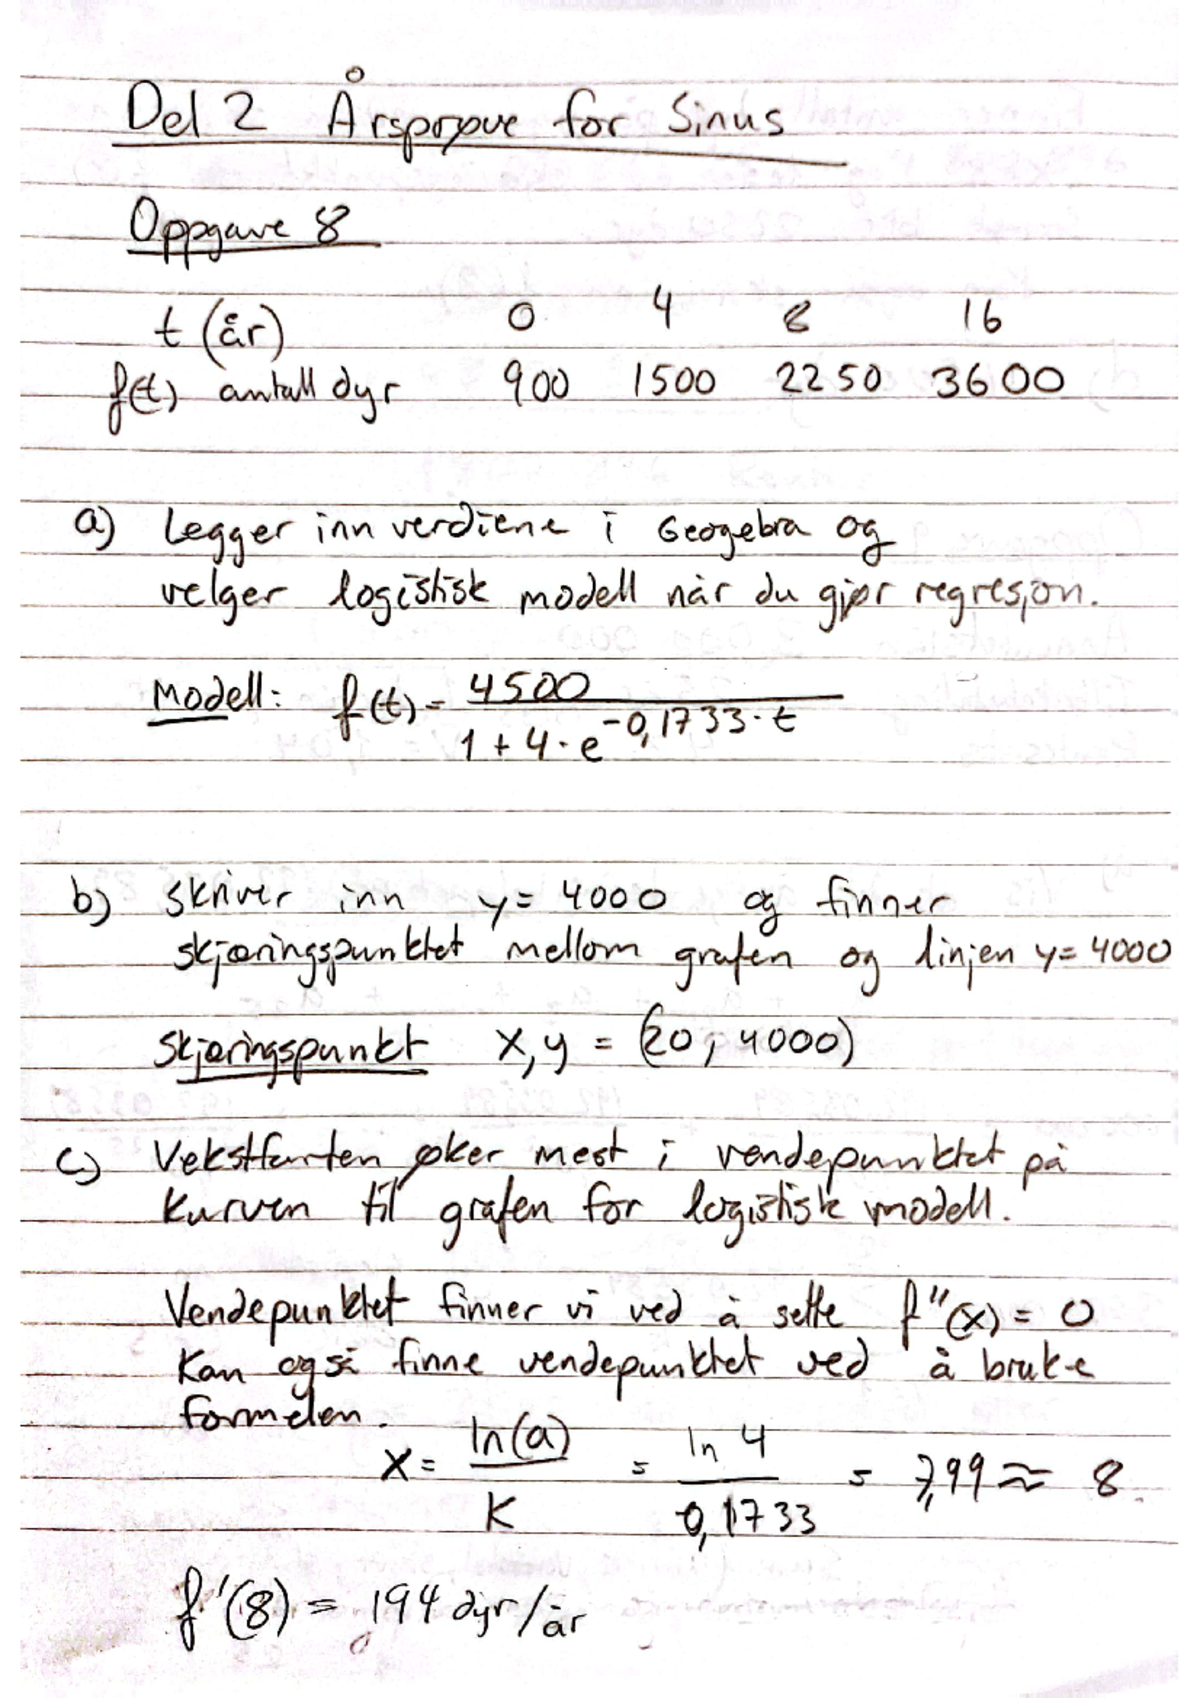 Del 2 Årsprøve for Sinus
Oppgave 8
t (år) 0 4 8 16
f(t) antall dyr 900 1500 2250 3600
a) Legger inn verdiene i Geogebra og
velger logistisk modell når du gjør regresjon.
Modell: f(t) = 4500 / (1 + 4 · e^(-0,1733 · t))
b) Skriver inn y = 4000 og finner
skjæringspunktet mellom grafen og linjen y = 4000
Skjæringspunkt x,y = (20, 4000)
c) Vekstfarten øker mest i vendepunktet på
kurven til grafen for logistisk modell.
Vendepunktet finner vi ved å sette f''(x) = 0
Kan også finne vendepunktet ved å bruke
formelen.
x = ln(a) / K = ln 4 / 0,1733 = 7,99 ≈ 8
f'(8) = 194 dyr/år